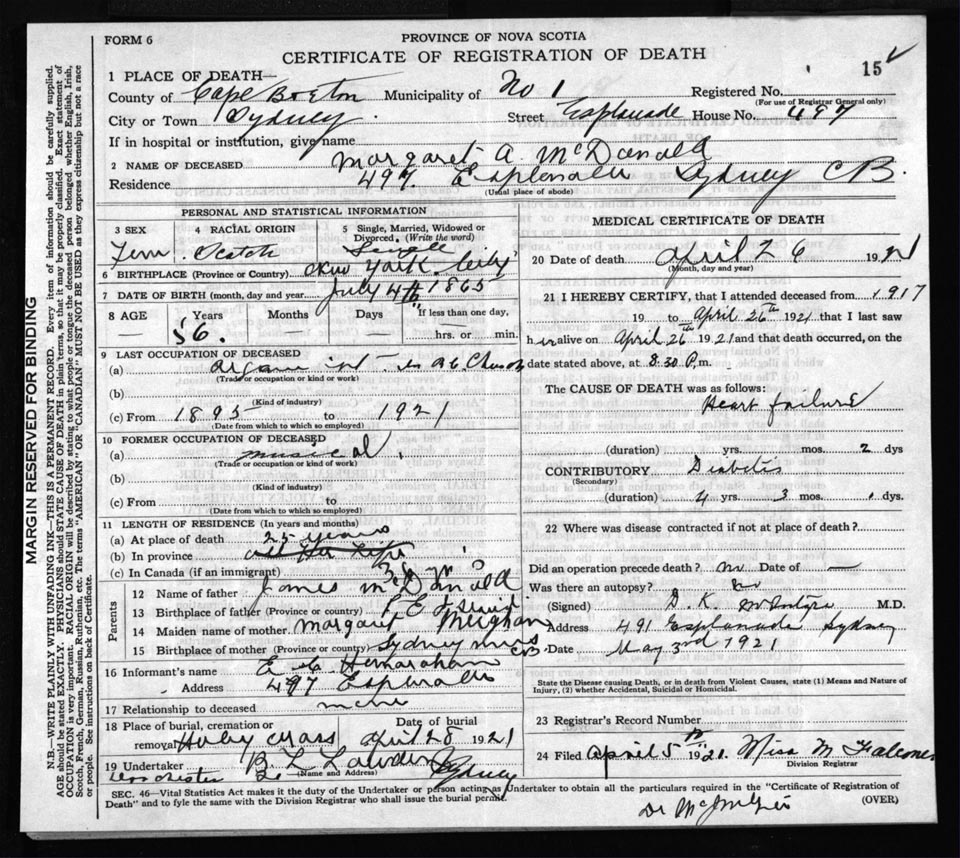 FORM 6
PROVINCE OF NOVA SCOTIA
CERTIFICATE OF REGISTRATION OF DEATH
15
1 PLACE OF DEATH—
County of Cape Breton Municipality of No 1 Registered No.
(For use of Registrar General only)
City or Town Sydney Street Esplanade House No. 497
If in hospital or institution, give name
2 NAME OF DECEASED Margaret A. McDonald
Residence 497 Esplanade Sydney CB.
(Usual place of abode)
PERSONAL AND STATISTICAL INFORMATION
3 SEX 4 RACIAL ORIGIN 5 Single, Married, Widowed or Divorced. (Write the word)
Fem Scotch Single
6 BIRTHPLACE (Province or Country) New York City
7 DATE OF BIRTH (month, day and year) July 4th 1865
8 AGE Years Months Days If less than one day,
56. hrs. or min.
9 LAST OCCUPATION OF DECEASED
(a) Organist in
(Trade or occupation or kind of work)
(b)
(Kind of industry)
(c) From 1895 to 1921
(Date from which to which so employed)
10 FORMER OCCUPATION OF DECEASED
(a) musical
(Trade or occupation or kind of work)
(b)
(Kind of industry)
(c) From to
(Date from which to which so employed)
11 LENGTH OF RESIDENCE (In years and months)
(a) At place of death 25 years
(b) In province all her life
(c) In Canada (if an immigrant)
Parents
12 Name of father James McDonald
13 Birthplace of father (Province or country) P E Island
14 Maiden name of mother Margaret Meighan
15 Birthplace of mother (Province or country) Sydney mines CB.
16 Informant's name E
Address 497 Esplanade
17 Relationship to deceased
18 Place of burial, cremation or removal Holy Cross Date of burial April 28 1921
19 Undertaker Sydney
(Name and Address)
MEDICAL CERTIFICATE OF DEATH
20 Date of death April 26 1921
(Month, day and year)
21 I HEREBY CERTIFY, that I attended deceased from 1917
19 to April 26th 1921 that I last saw
her alive on April 26th 1921 and that death occurred, on the
date stated above, at 8.30 P.m.
The CAUSE OF DEATH was as follows:
Heart failure
(duration) yrs. mos. 2 dys
CONTRIBUTORY Diabetis
(Secondary)
(duration) 4 yrs. 3 mos. dys.
22 Where was disease contracted if not at place of death?
Did an operation precede death? no Date of —
Was there an autopsy? no
(Signed) D. K. McIntyre M.D.
Address 491 Esplanade Sydney
Date May 3rd 1921
State the Disease causing Death, or in death from Violent Causes, state (1) Means and Nature of Injury, (2) whether Accidental, Suicidal or Homicidal.
23 Registrar's Record Number
24 Filed April 5th 1921. Miss M Falconer
Division Registrar
SEC. 46—Vital Statistics Act makes it the duty of the Undertaker or person acting as Undertaker to obtain all the particulars required in the "Certificate of Registration of
Death" and to fyle the same with the Division Registrar who shall issue the burial permit.
(OVER)
Dr McIntyre
MARGIN RESERVED FOR BINDING
N.B.—WRITE PLAINLY WITH UNFADING INK—THIS IS A PERMANENT RECORD. Every item of information should be carefully supplied.
AGE should be stated EXACTLY. PHYSICIANS should STATE CAUSE OF DEATH in plain terms, so that it may be properly classified. Exact statement of
OCCUPATION is very important. RACIAL ORIGIN will be described by stating to what people or tongue the deceased person belonged whether English, Irish,
Scotch, French, German, Russian, Ruthenian, etc. The terms "AMERICAN" OR "CANADIAN" MUST NOT BE USED as they express citizenship but not a race
or people. See instructions on back of Certificate.